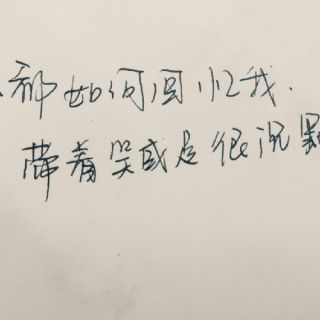 都如何回忆我.
带着哭或是很沉默